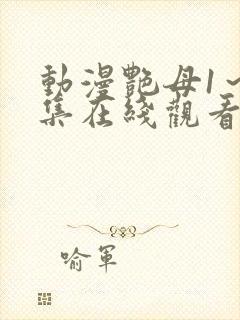 動漫艷母1~
集在綫觀看
喻軍